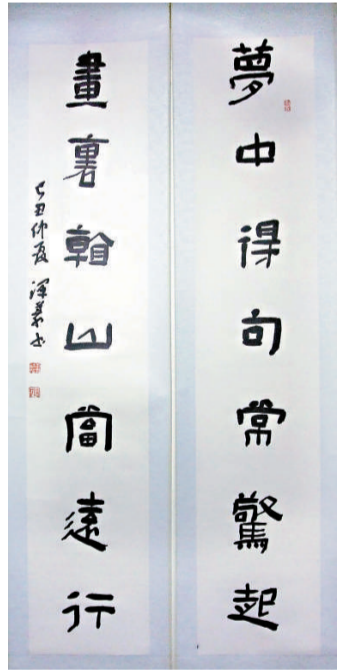 夢中得句常驚起
畫裏看山當遠行
己丑仲夏 书